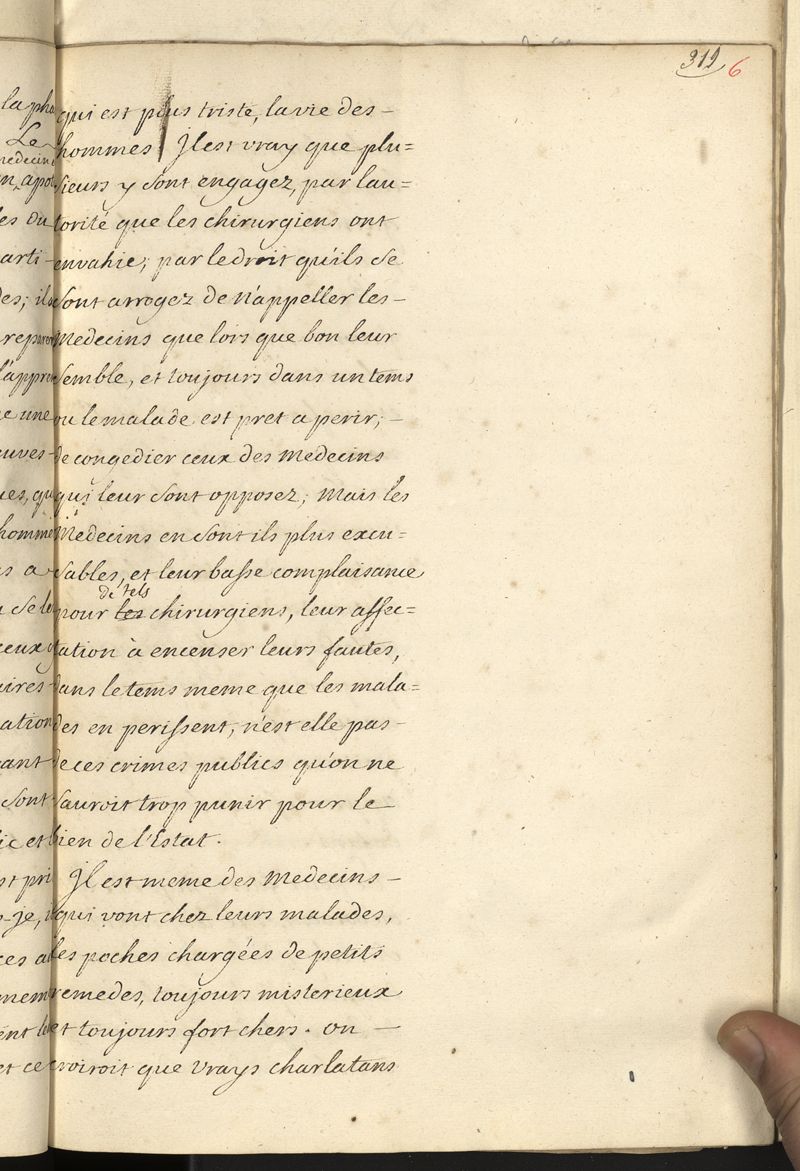 312 6
qui est plus triste, la vie des -
hommes. Il est vray que plu=
sieurs y sont engagez, par l'au=
torité que les chirurgiens ont
envahie; par le droit qu'ils se
sont arrogez de n'appeller les -
Medecins que lors que bon leur
semble, et toujours dans un tems
ou le malade est pret a perir; -
de congedier ceux des Medecins
qui leur sont opposez; Mais les
Medecins en sont ils plus excu=
sables, et leur basse complaisance
de tels
pour les chirurgiens, leur affec=
tation à encenser leurs fautes,
dans le tems meme que les mala=
des en perissent, n'est elle pas -
de ces crimes publics qu'on ne
sauroit trop punir pour le
bien de l'Estat.
Il est meme des Medecins -
qui vont chez leurs malades,
les poches chargées de petits
remedes, toujours misterieux
et toujours fort chers. on -
croiroit que vrays charlatans